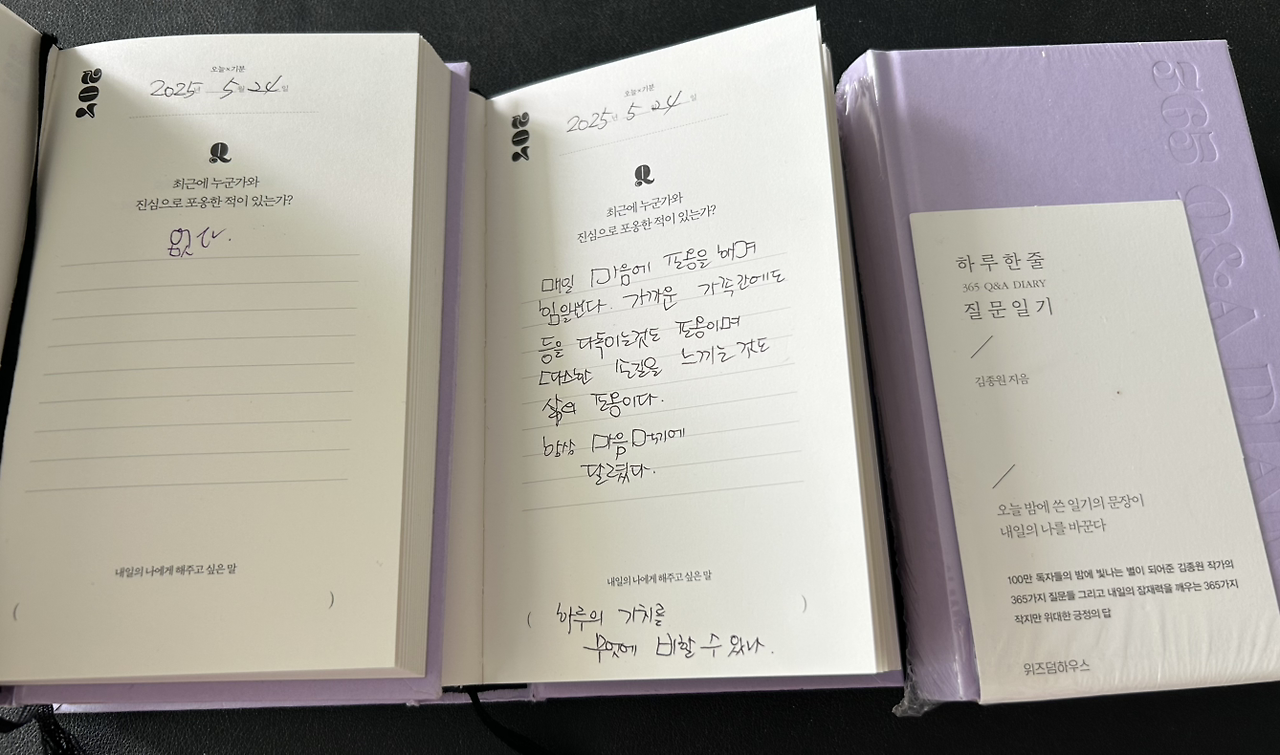 207
오늘×기분
2025년 5월 24일
Q
최근에 누군가와
진심으로 포옹한 적이 있는가?
없다.
내일의 나에게 해주고 싶은 말
( )
207
오늘×기분
2025년 5월 24일
Q
최근에 누군가와
진심으로 포옹한 적이 있는가?
매일 마음에 포옹을 하며
힘을번다. 가까운 가족간에도
등을 다독이는것도 포옹이며
따스한 손길을 느끼는 것도
삶의 포옹이다.
항상 마음먹기에
달렸다.
내일의 나에게 해주고 싶은 말
( 하루의 가치를 )
무엇에 비할 수 있나.
365 Q&A DIA
하루한줄
365 Q&A DIARY
질문일기
김종원 지음
오늘 밤에 쓴 일기의 문장이
내일의 나를 바꾼다
100만 독자들의 밤에 빛나는 별이 되어준 김종원 작가의
365가지 질문들 그리고 내일의 잠재력을 깨우는 365가지
작지만 위대한 긍정의 답
위즈덤하우스